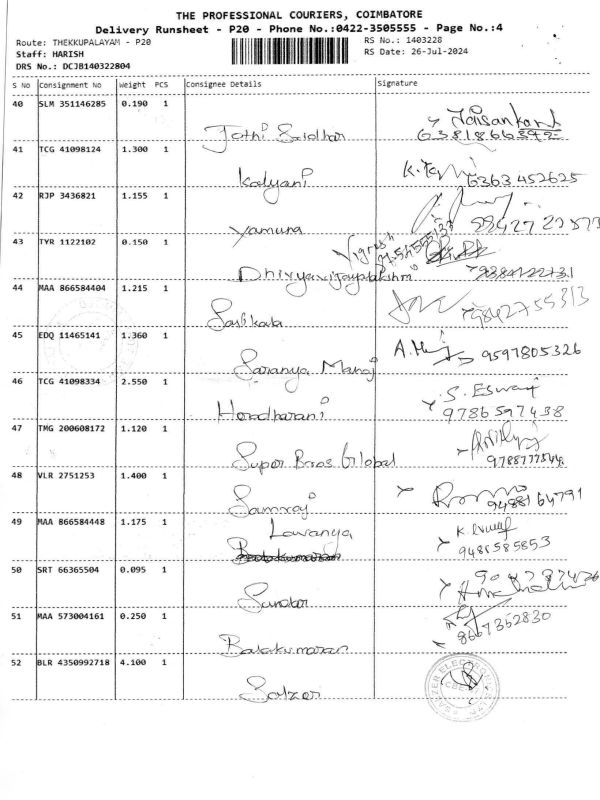 THE PROFESSIONAL COURIERS, COIMBATORE
Delivery Runsheet - P20 - Phone No.:0422-3505555 - Page No.:4
Route: THEKKUPALAYAM - P20
RS No.: 1403228
Staff: HARISH
RS Date: 26-Jul-2024
DRS No.: DCJB140322804
S No Consignment No Weight PCS Consignee Details Signature
40 SLM 351146285 0.190 1
Jothi Sridhar
41 TCG 41098124 1.300 1
Kalyani 6363452625
42 RJP 3436821 1.155 1
Yamuna
43 TYR 1122102 0.150 1
Dhivyavijayalakshmi
44 MAA 866584404 1.215 1
Sasikala 9842755313
45 EDQ 11465141 1.360 1
Saranya Manoj 9597805326
46 TCG 41098334 2.550 1
S. Eswari
9786597438
47 TMG 200608172 1.120 1
Super Bros Global
48 VLR 2751253 1.400 1
Samraj 9488164791
49 MAA 866584448 1.175 1
Lavanya
9485585853
50 SRT 66365504 0.095 1
Sundar
51 MAA 573004161 0.250 1
8667352830
Balakumaran
52 BLR 4350992718 4.100 1
Salzer